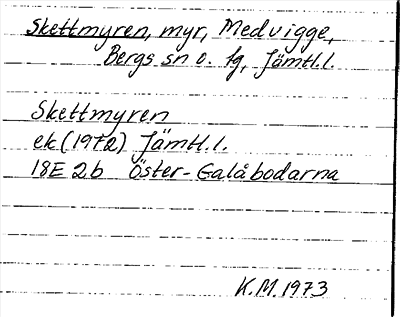 Skettmyren, myr, Medvigge,
Bergs sn o. fg, Jämtl.l.
Skettmyren
ek (1972) Jämtl.l.
18E 2b Öster-Galåbodarna
K.M. 1973